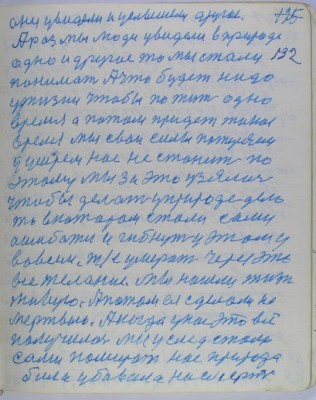 они увидели и услышали другое. 175
А раз мы люди увидели в природе
одно и другое то мы стали 132
понимать А что будет надо
у жизни чтобы пожить одно
время а потом придет такое
время мы свои силы потеряем
и умрем нас не станет по
этому мы за это взялись
чтобы делать у природе дело
то в котором стали сами
ошибаться и гибнуть у этом у
во всем. т/е умирать через это
все желание. Мы нашли жить
живую. А потом ея сделали на
мертвою. А когда у нас это все
получилось мы у след стали
сами помирать нас природа
била убивала на смерть